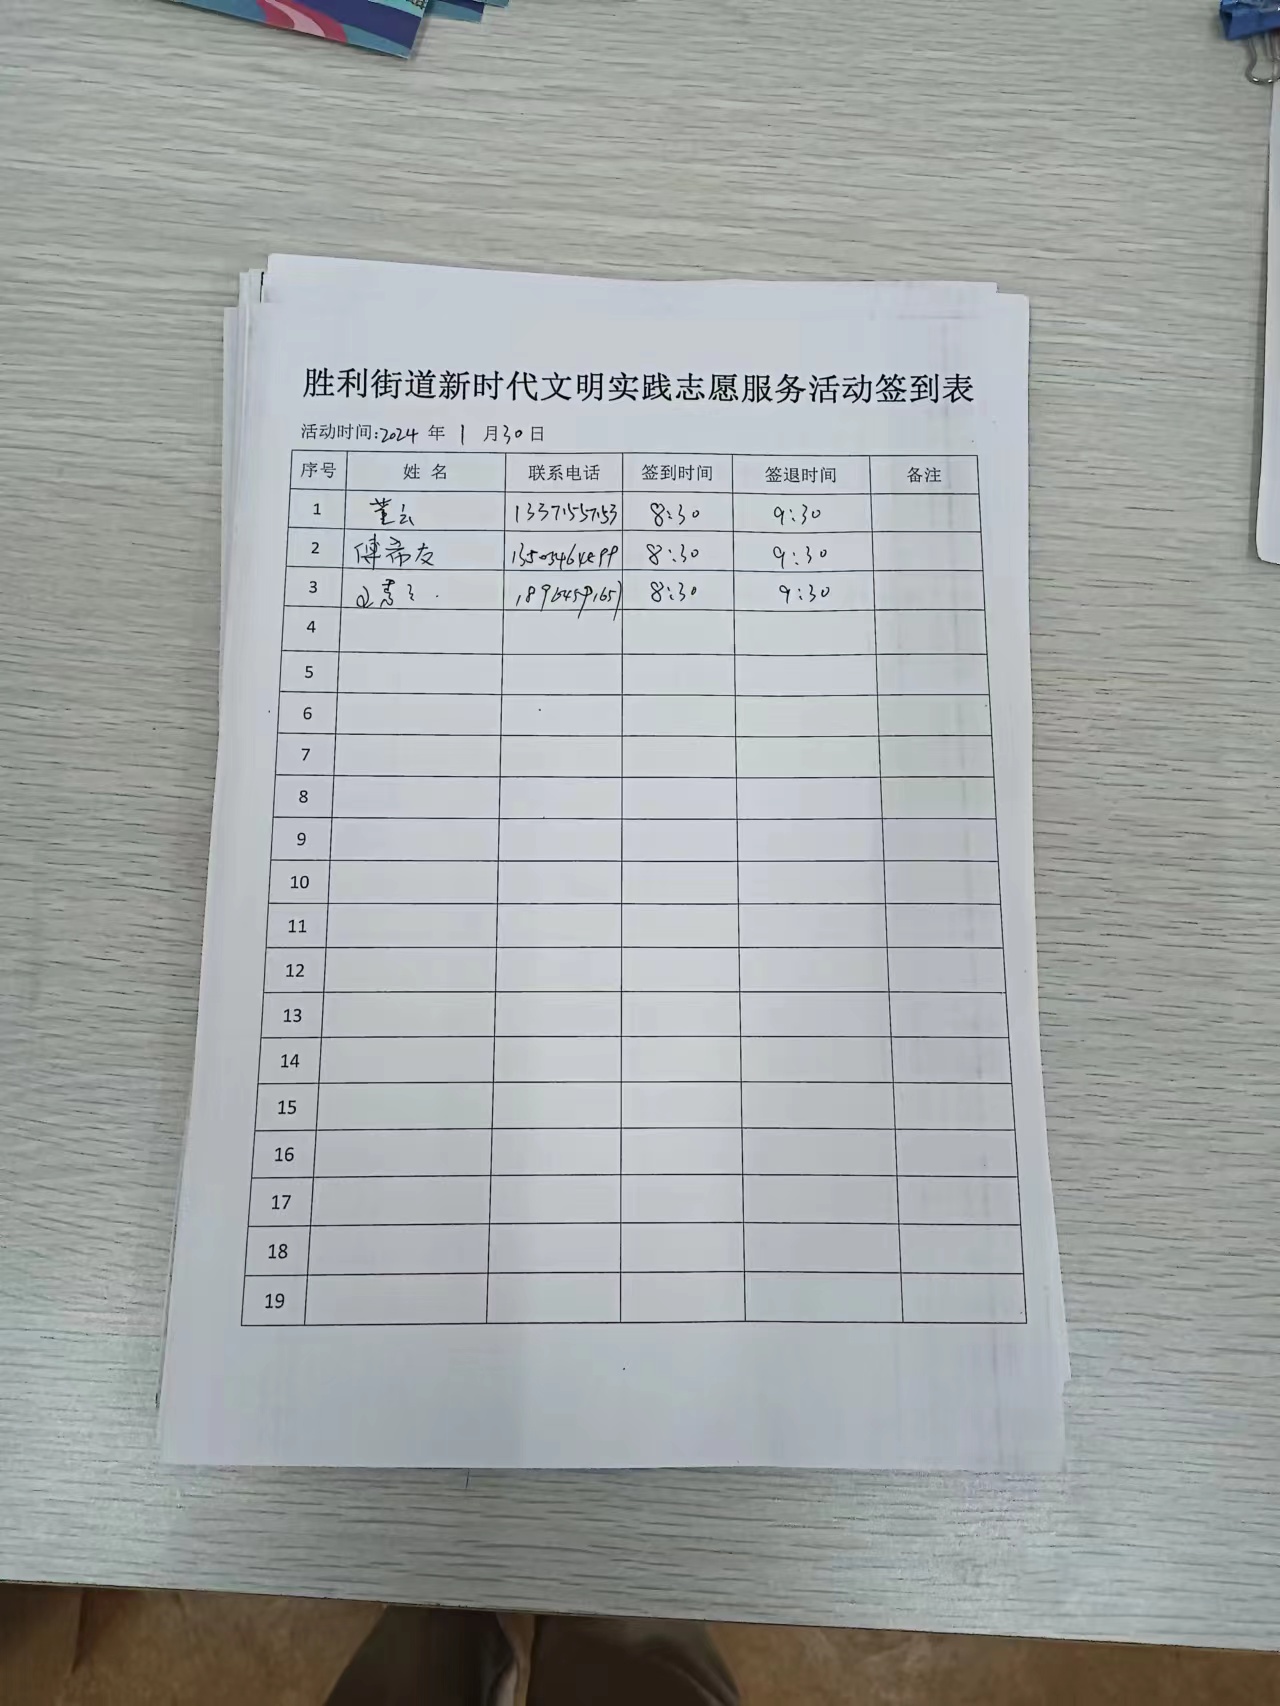 胜利街道新时代文明实践志愿服务活动签到表
活动时间:2024 年 1 月30日
序号 姓 名 联系电话 签到时间 签退时间 备注
1 董云 8:30 9:30
2 傅希友 8:30 9:30
3 8:30 9:30
4
5
6
7
8
9
10
11
12
13
14
15
16
17
18
19